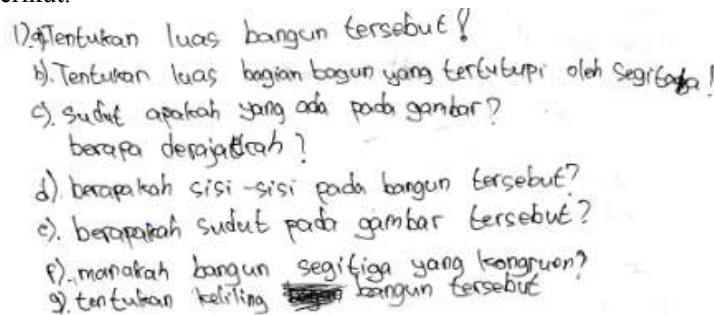 erikut:
1) a) Tentukan luas bangun tersebut!
b). Tentukan luas bagian bagun yang tertutupi oleh segitaga!
c). Sudut apakah yang ada pada gambar?
berapa derajatkah?
d). berapakah sisi-sisi pada bangun tersebut?
e). berapakah sudut pada gambar tersebut?
f). manakah bangun segitiga yang kongruen?
g) tentukan keliling bangun tersebut